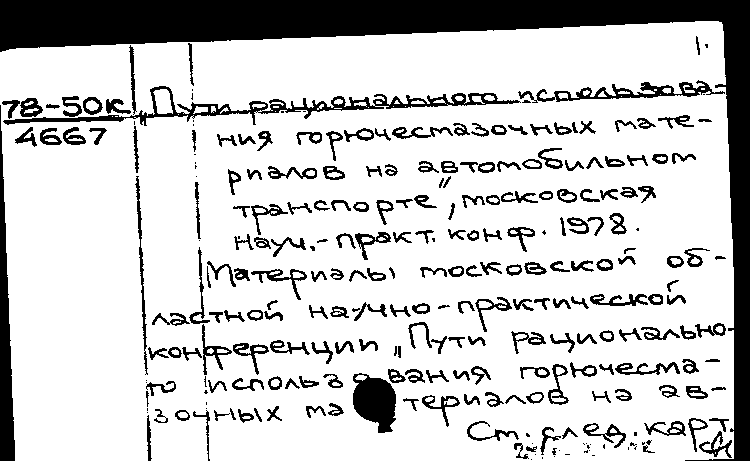 1.
78-50к „Пути рационального использова-
4667 ния горючесмазочных мате-
риалов на автомобильном
транспорте", московская
науч.-практ. конф. 1978.
Материалы московской об-
ластной научно-практической
конференции „Пути рационально-
го использования горючесма-
зочных материалов на ав-
См. след. карт.